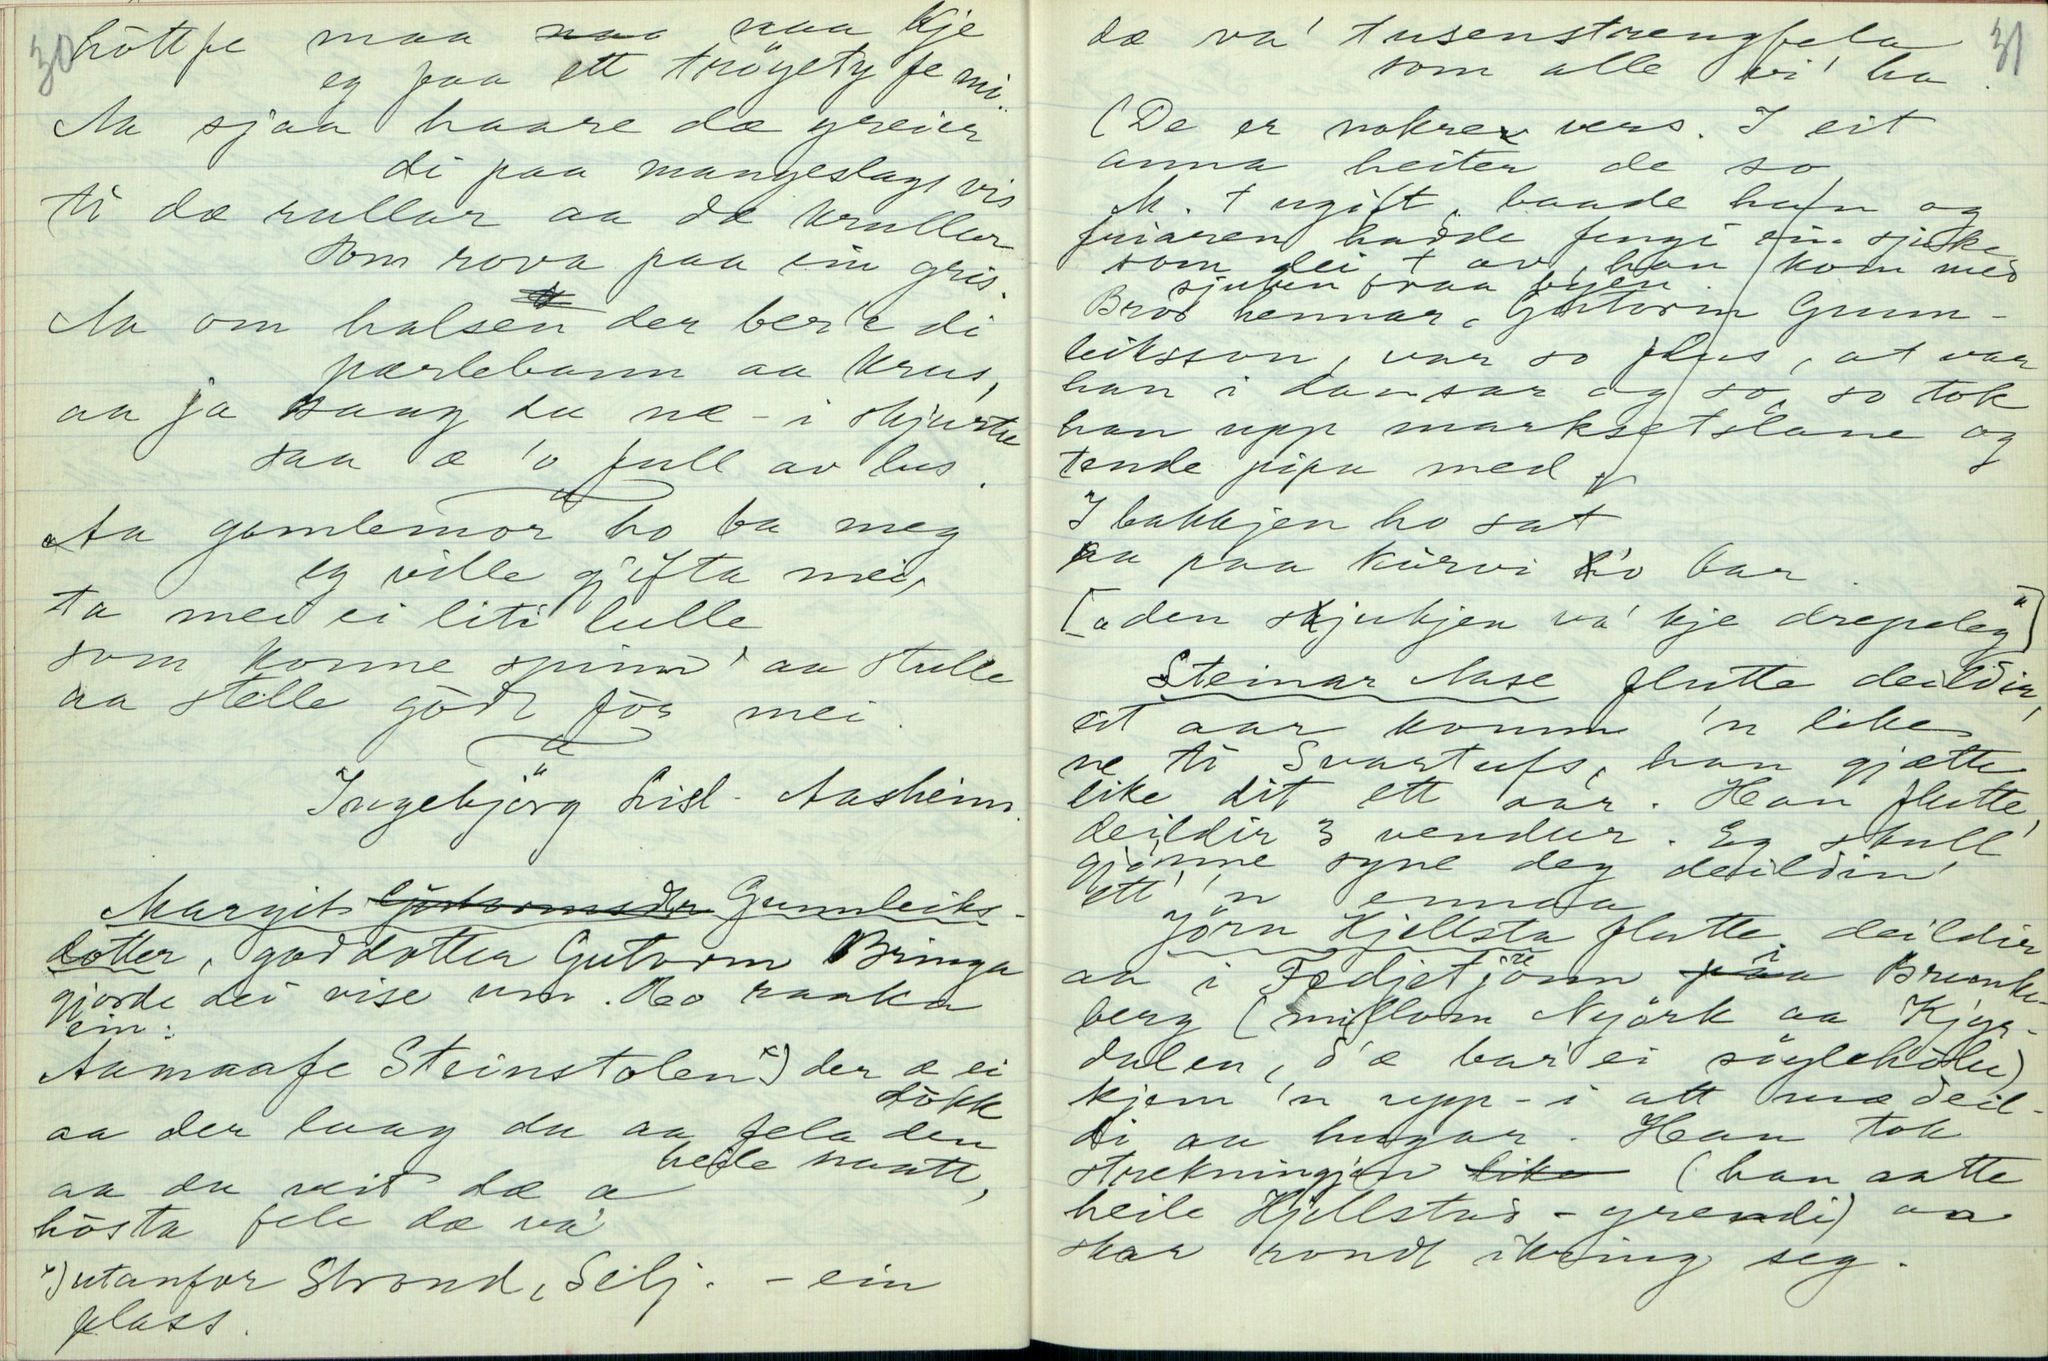 30
höttpe maa naa naa kje
eg faa ett tröyety fe mi.
Aa sjaa haare dæ greier
di paa mangeslags vis
ti dæ rullar aa dæ krullar
som rova paa ein gris.
Aa om halsen der ber'e di
pærlebann aa krus,
aa ja saag du næ - i skjurtu
saa æ 'o full av lus.
Aa gamlemor ho ba meg
eg ville gjifta mei,
ta mei ei liti lulle
som konne spinn' aa stulle
aa stelle godt för mei.
Ingebjörg Lisl. Aasheim.
Margit Gunnleiks-
dotter, goddotter Gutorm Bringa
gjorde dei vise um. Ho raaka
ein:
Aamaafe Steinstolen x) der æ ei
dökk
aa der laag du aa fela den
heile naatt,
aa du veit dæ æ
hösta fele dæ va'
x) utanfor Strond, Selj. - ein
plass.
31
dæ va' tusenstrengfela
som alle vi' ha.
(De er nokre vers. I eit
anna heiter de so
M. † ugift, baade han og
friaren hadde fengi ein sjuke
som dei † av, han kom med
sjuken fraa byen.
Bror hennar, Guttorm Gunn-
leiksson, var so flus, at var
han i dansar og so, so tok
han upp marksetslane og
tende pipa med.
I bakkjen ho sat
aa paa kurvi 'o bar.
["den sjukjen va' kje drepeleg"]
Steinar Aase flutte deildir,
eit aar komm 'n like
ne ti Svartufs, han gjætte
like dit ett aar. Han flutte
deildir 3 vendur. Eg skull'
gjönne syne deg deildin'
ett 'n ennaa
Jörn Kjellsta flutte deildir
aa i Fædjetjönn i Brunke-
berg (millom Nyörk aa Kjyr-
dalen, d'æ bar' ei söylehole)
kjem 'n upp - i att mæ deil-
di aa hogar. Han tok
strekningjen (han aatte
heile Kjellstad - grendi) aa
skar rondt ikring seg.